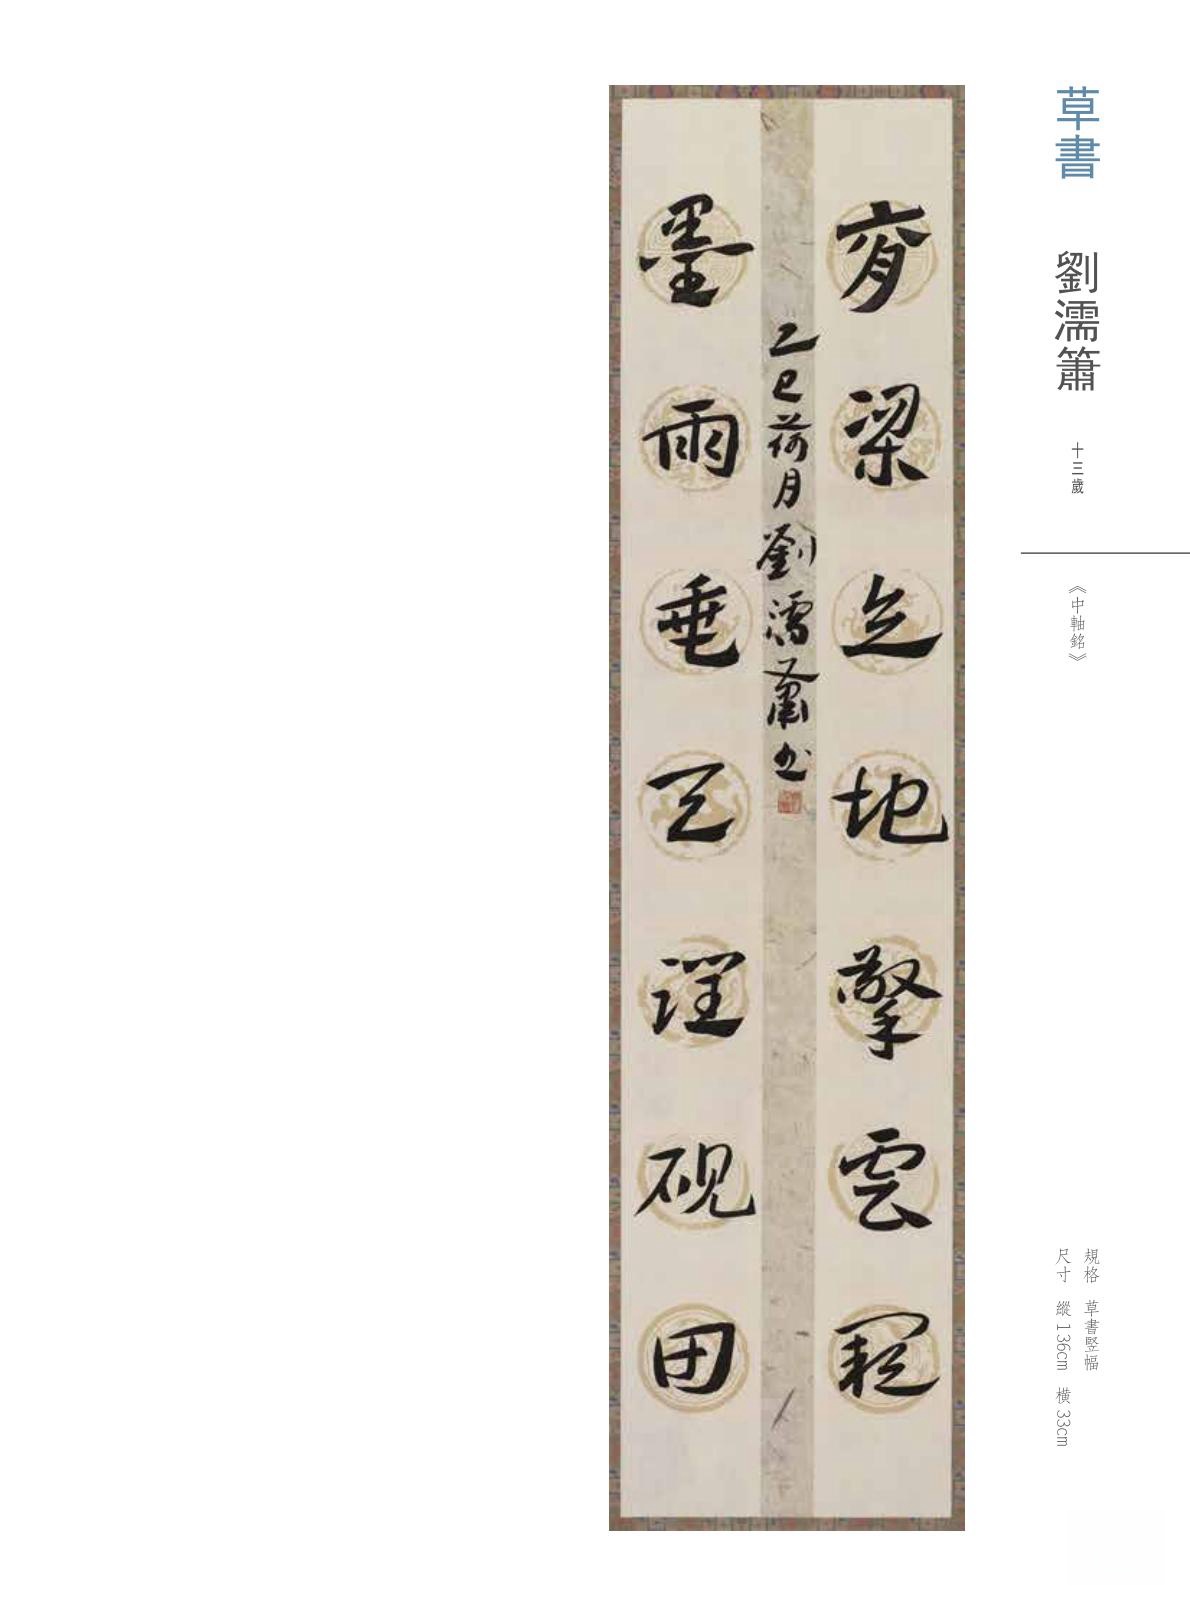 草書　劉濡簫　十三歲
《中軸銘》
規格　草書竪幅
尺寸　縱136cm　橫33cm
脊梁立地擎雲闕
墨雨垂天潤硯田
乙巳荷月劉濡簫書